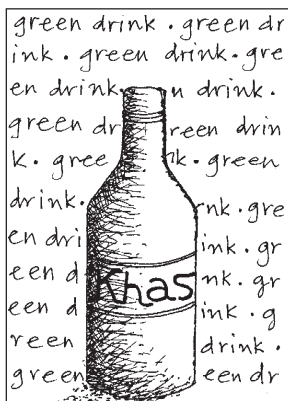 green drink . green dr
ink . green drink . gre
en drink. n drink .
green dr reen drin
k . gree nk . green
drink. ink . gre
en dri ink . gr
een d Khas nk . gr
een d ink . g
reen drink .
green een dr